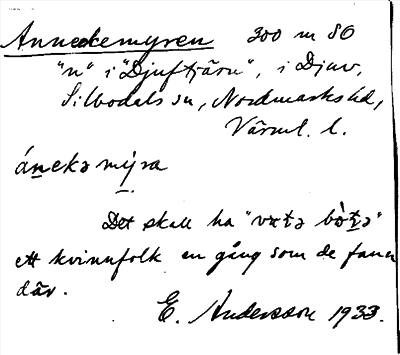 Annekemyren 300 m SO
"n" i "Djuftjärn", i Djuv,
Silbodals sn, Nordmarks hd,
Värml. l.
ánekə mýra
Det skall ha "vɶtə bòtə"
ett kvinnfolk en gång som de fann
där.
E. Andersson 1933.